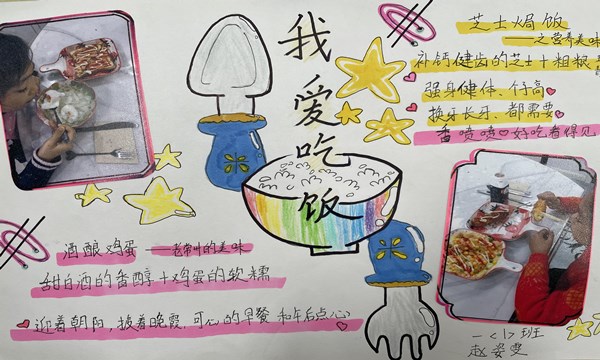 我爱吃饭
芝士焗饭
——之营养美味
补钙健齿的芝士+粗粮
强身健体、仔高
换牙长牙、都需要
香喷喷 好吃看得见
酒酿鸡蛋——老常州的美味
甜白酒的香醇+鸡蛋的软糯
迎着朝阳,披着晚霞,可心的早餐和午后点心
一〈1〉班
赵姿雯